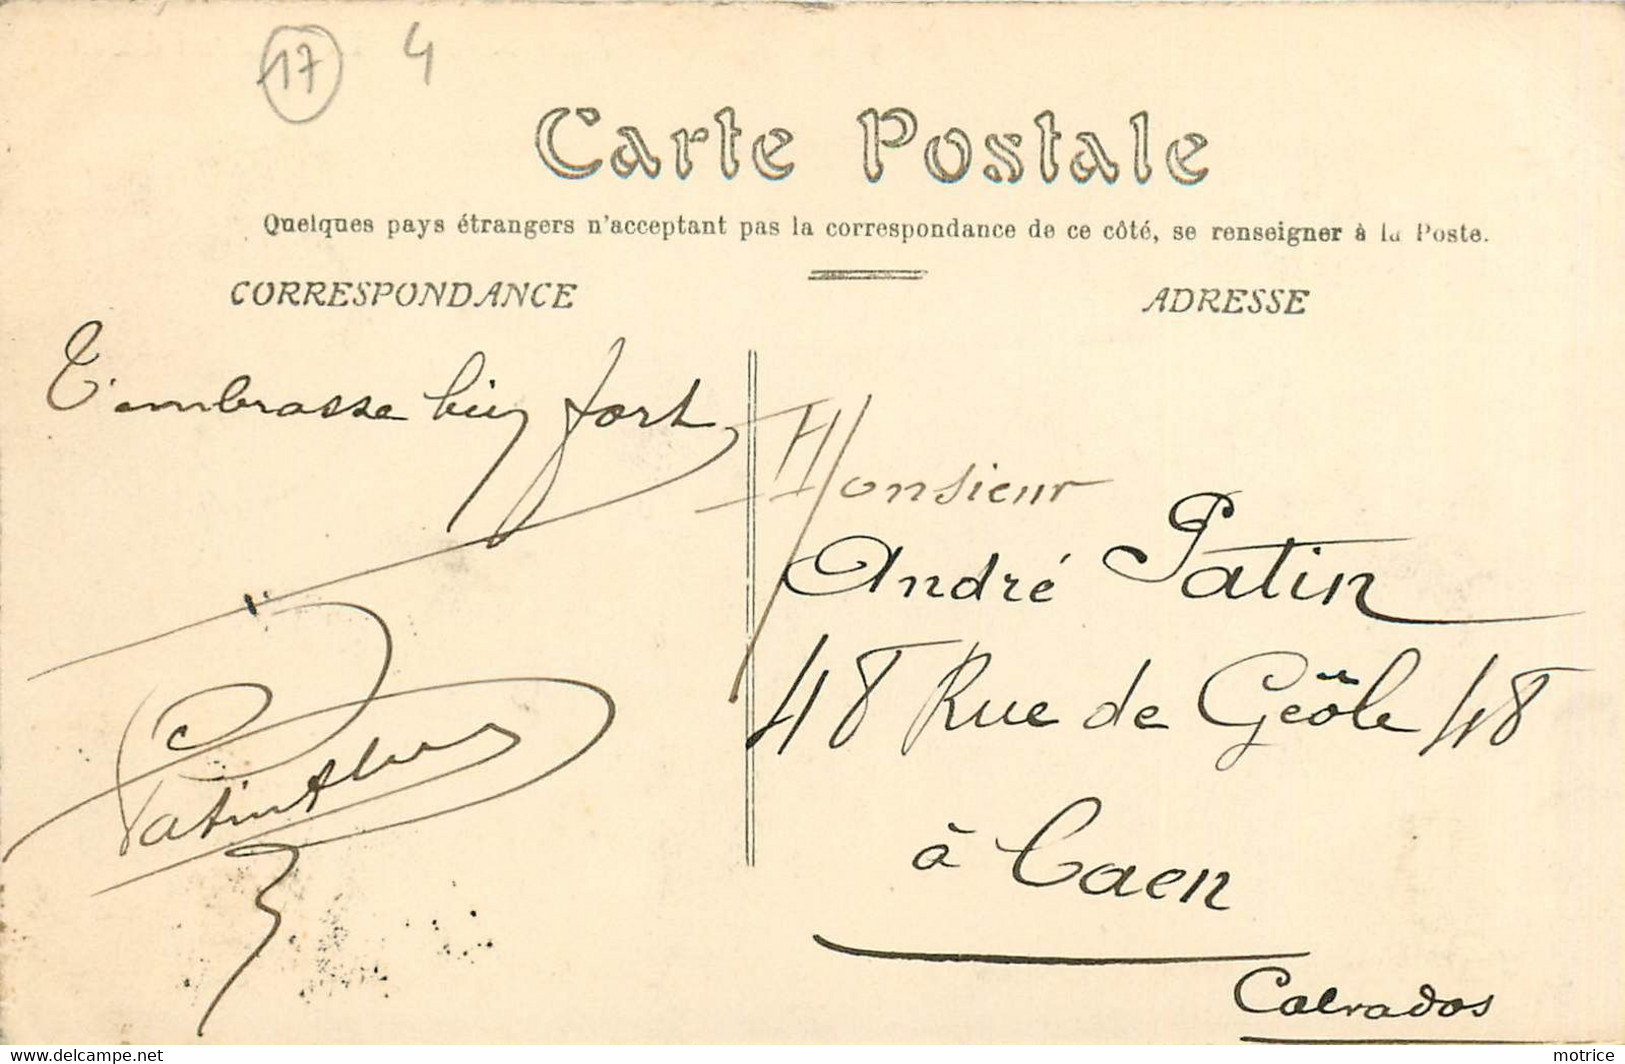 17 4
Carte Postale
Quelques pays étrangers n'acceptant pas la correspondance de ce côté, se renseigner à la Poste.
CORRESPONDANCE
ADRESSE
T'embrasse bien fort
Monsieur
André Patin
48 Rue de Geôle 48
à Caen
Calvados
Patin
https://www.delcampe.net
motrice